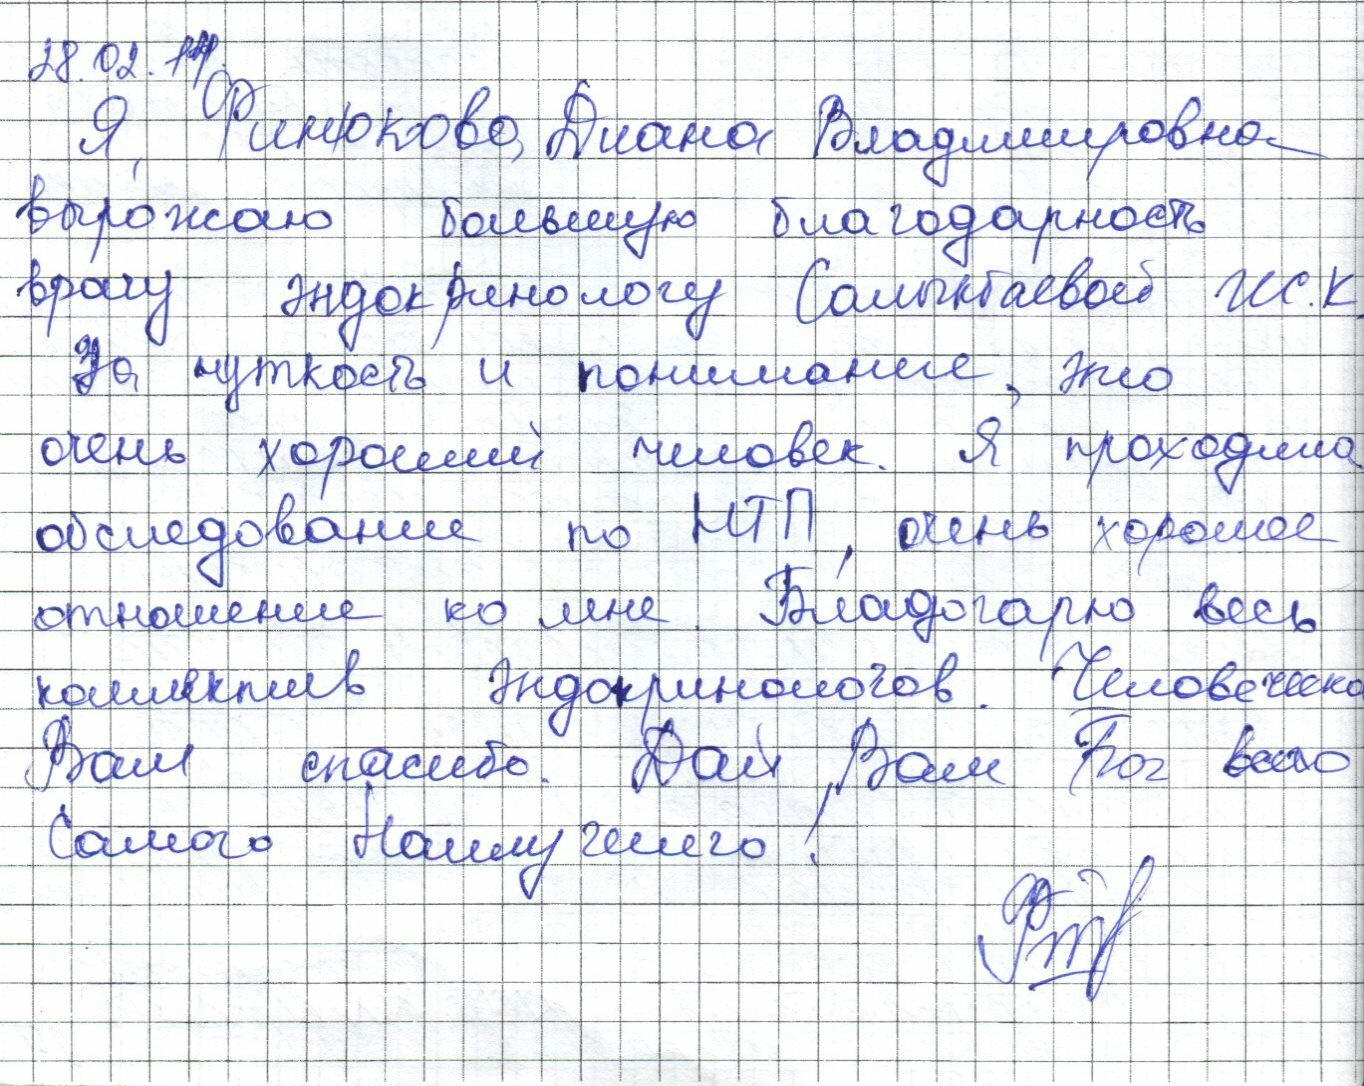 28.02.17.
Я, Финюкова, Диана Владимировна
выражаю большую благодарность
врачу эндокринологу Салыкбаевой Ж.К.
За чуткость и понимание, это
очень хороший человек. Я проходила
обследование по НТП, очень хорошее
отношение ко мне. Бладогарю весь
коллектив эндокринологов. Человеческо
Вам спасибо. Дай Вам Бог всего
Самого Наилучшего!